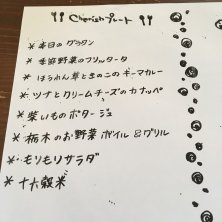 Cherishプレート
* 本日のグラタン
* 季節野菜のフリッタータ
* ほうれん草ときのこのキーマカレー
* ツナとクリームチーズのカナッペ
* 紫いものポタージュ
* 栃木のお野菜ボイル&グリル
* モリモリサラダ
* 十六穀米